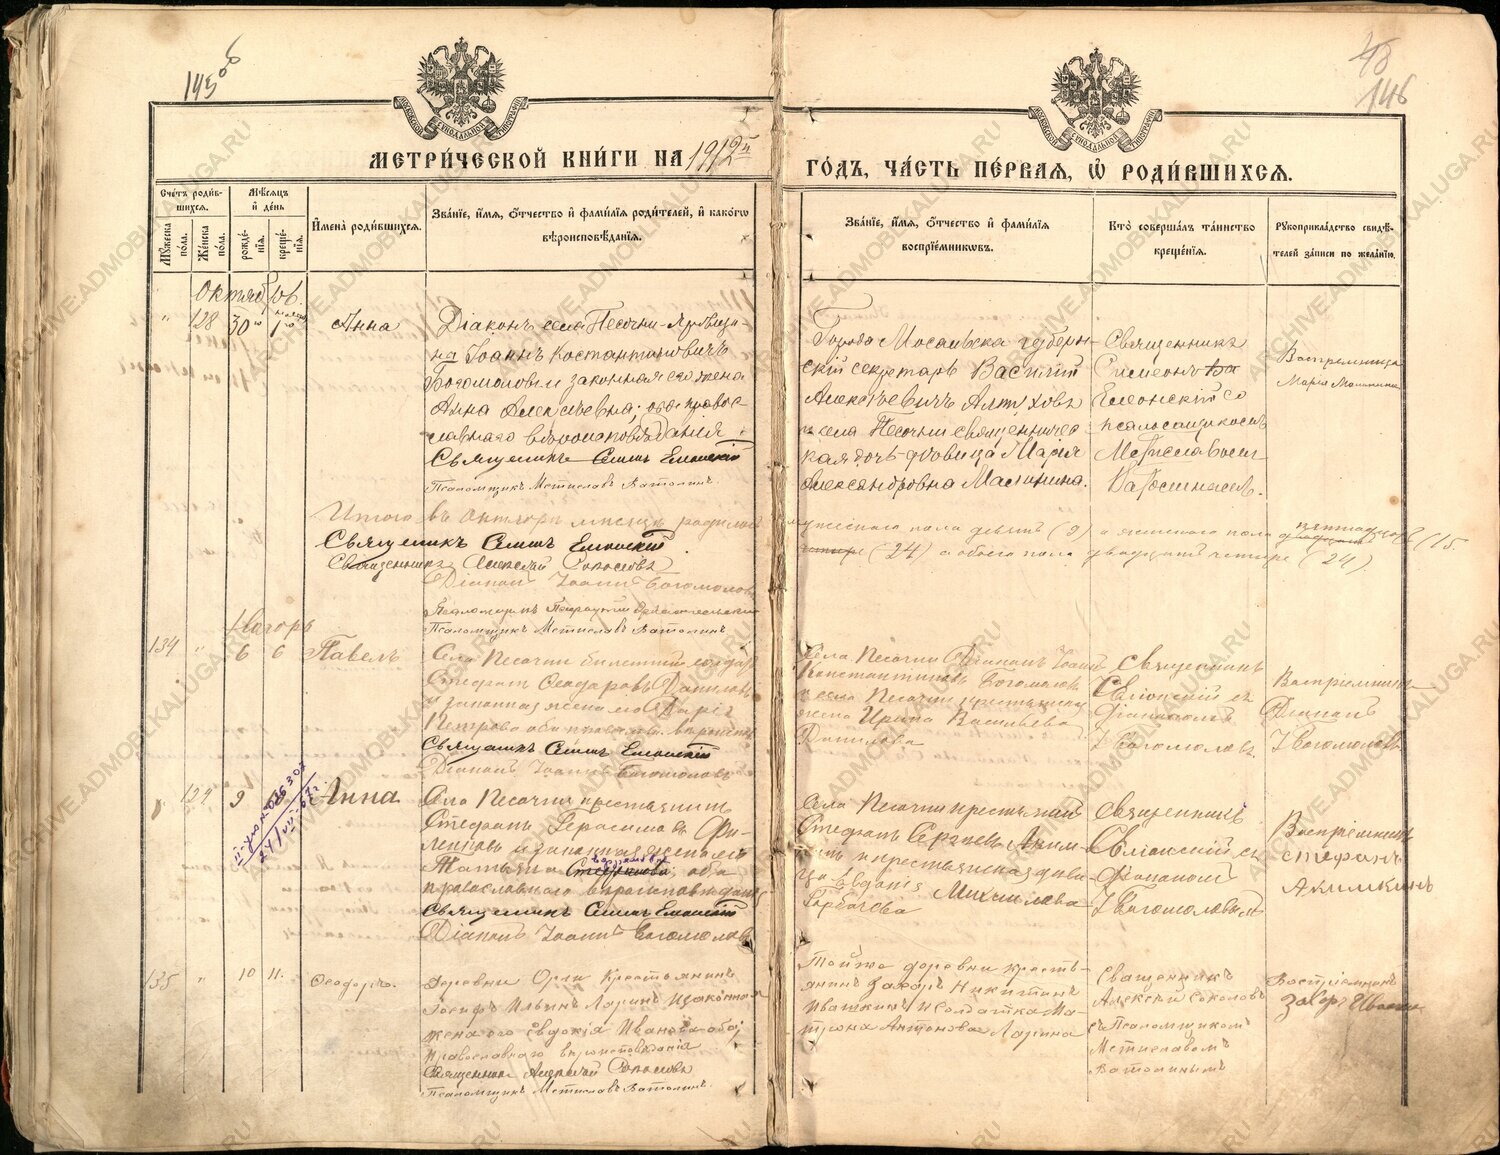 145 об
48
146
МОСКОВСКОЙ СѴНОДАЛЬНОЙ ТИПОГРАФІИ
МОСКОВСКОЙ СѴНОДАЛЬНОЙ ТИПОГРАФІИ
МЕТРИ́ЧЕСКОЙ КНИ́ГИ НА 1912 й
ГО́ДЪ, ЧА́СТЬ ПЕ́РВАЯ, Ѽ РОДИ́ВШИХСЯ.
Сче́тъ роди́вшихся.
Мꙋ́жеска по́ла.
Же́нска по́ла.
Мѣ́сяцъ и҆ де́нь
рожде́нія.
креще́нія.
И҆мена̀ роди́вшихся.
Зва́ніе, и҆́мя, ѻ҆́тчество и҆ фами́лія роди́телей, и҆ како́гѡ вѣроисповѣ́данія.
Зва́ніе, и҆́мя, ѻ҆́тчество и҆ фами́лія воспріе́мникѡвъ.
Кто̀ соверша́лъ та́инство креще́нія.
Рꙋкоприкла́дство свидѣ́телей за́писи по жела́нію.
Октябрь.
" 128 30 1 Анна
Діаконъ села Песочни
на Іоаннъ Костантиновичъ
Богомоловъ и законная его жена
Анна Алексѣевна; оба правос-
лавнаго вѣроисповѣданія
Священникъ Симеонъ Елеонскій
Псаломщикъ Мстиславъ Ватолинъ.
Города Мосальска губерн-
скій секретарь Василій
Алексѣевичъ Алтуховъ
и села Песочни священничес
кая дочь-дѣвица Марія
Александровна Малинина.
Священникъ
Симеонъ
Елеонскій со
псаломщикомъ
Мстиславом
Ватолинымъ.
Воспріемница
Марія Малинина
Итого въ октябрѣ мѣсяцѣ родилось
мужескаго пола девять (9) и женскаго пола пятнадцать (15
(24) а обоего пола двадцать четыре (24)
Священникъ Симеонъ Елеонскій
Священникъ Алексѣй Соколовъ
Діаконъ Іоаннъ Богомоловъ
Псаломщикъ
Псаломщикъ Мстиславъ Ватолинъ
Ноябрь
134 " 6 6 Павелъ
Села Песочни билетный солдатъ
Стефанъ Ѳеодоровъ Даниловъ
и законная жена его Дарія
Петрова оба православн. вѣроисп.
Священникъ Симеонъ Елеонскій
Діаконъ Іоаннъ Богомоловъ
Села Песочни Діаконъ Іоаннъ
Константиновъ Богомоловъ
и села Песочни крестьянская
жена Ирина Васильева
Данилова
Священникъ
С Еліонскій съ
Діакономъ
І Богомоловъ
Воспріемникъ
Діаконъ
І Богомоловъ
" 129 9 Анна
24/VII
Села Песочни крестьянинъ
Стефанъ Герасимовъ Фи-
липповъ и законная жена его
Татьяна Стефанова оба
православнаго вѣроисповѣданія
Священникъ Симеонъ Елеонскій
Діаконъ Іоаннъ Богомоловъ
Села Песочни крестьянинъ
Стефанъ Сергѣевъ Аким-
и крестьянская дѣви-
ца Евдокія Михайлова
Горбачева
Священникъ
С Еліонскій съ
Діакономъ
І Богомоловымъ
Воспріемникъ
Стефанъ
Акимкинъ
135 " 10 11. Ѳеодоръ.
Деревни Орли крестьянинъ
Іосифъ Ильинъ Ларинъ и законная
жена его Евдокія Иванова оба
Православнаго вѣроисповѣданія
Священникъ Алексѣй Соколовъ
Псаломщикъ Мстиславъ Ватолинъ.
Той же деревни кресть-
янинъ Захаръ Никитинъ
Ивашкинъ и Солдатка Ма-
трона Антонова Ларина
Священникъ
Алексѣй Соколовъ
съ Псаломщикомъ
Мстиславомъ
Ватолинымъ
Воспріемникъ
Захаръ
ARCHIVE.ADMOBLKALUGA.RU